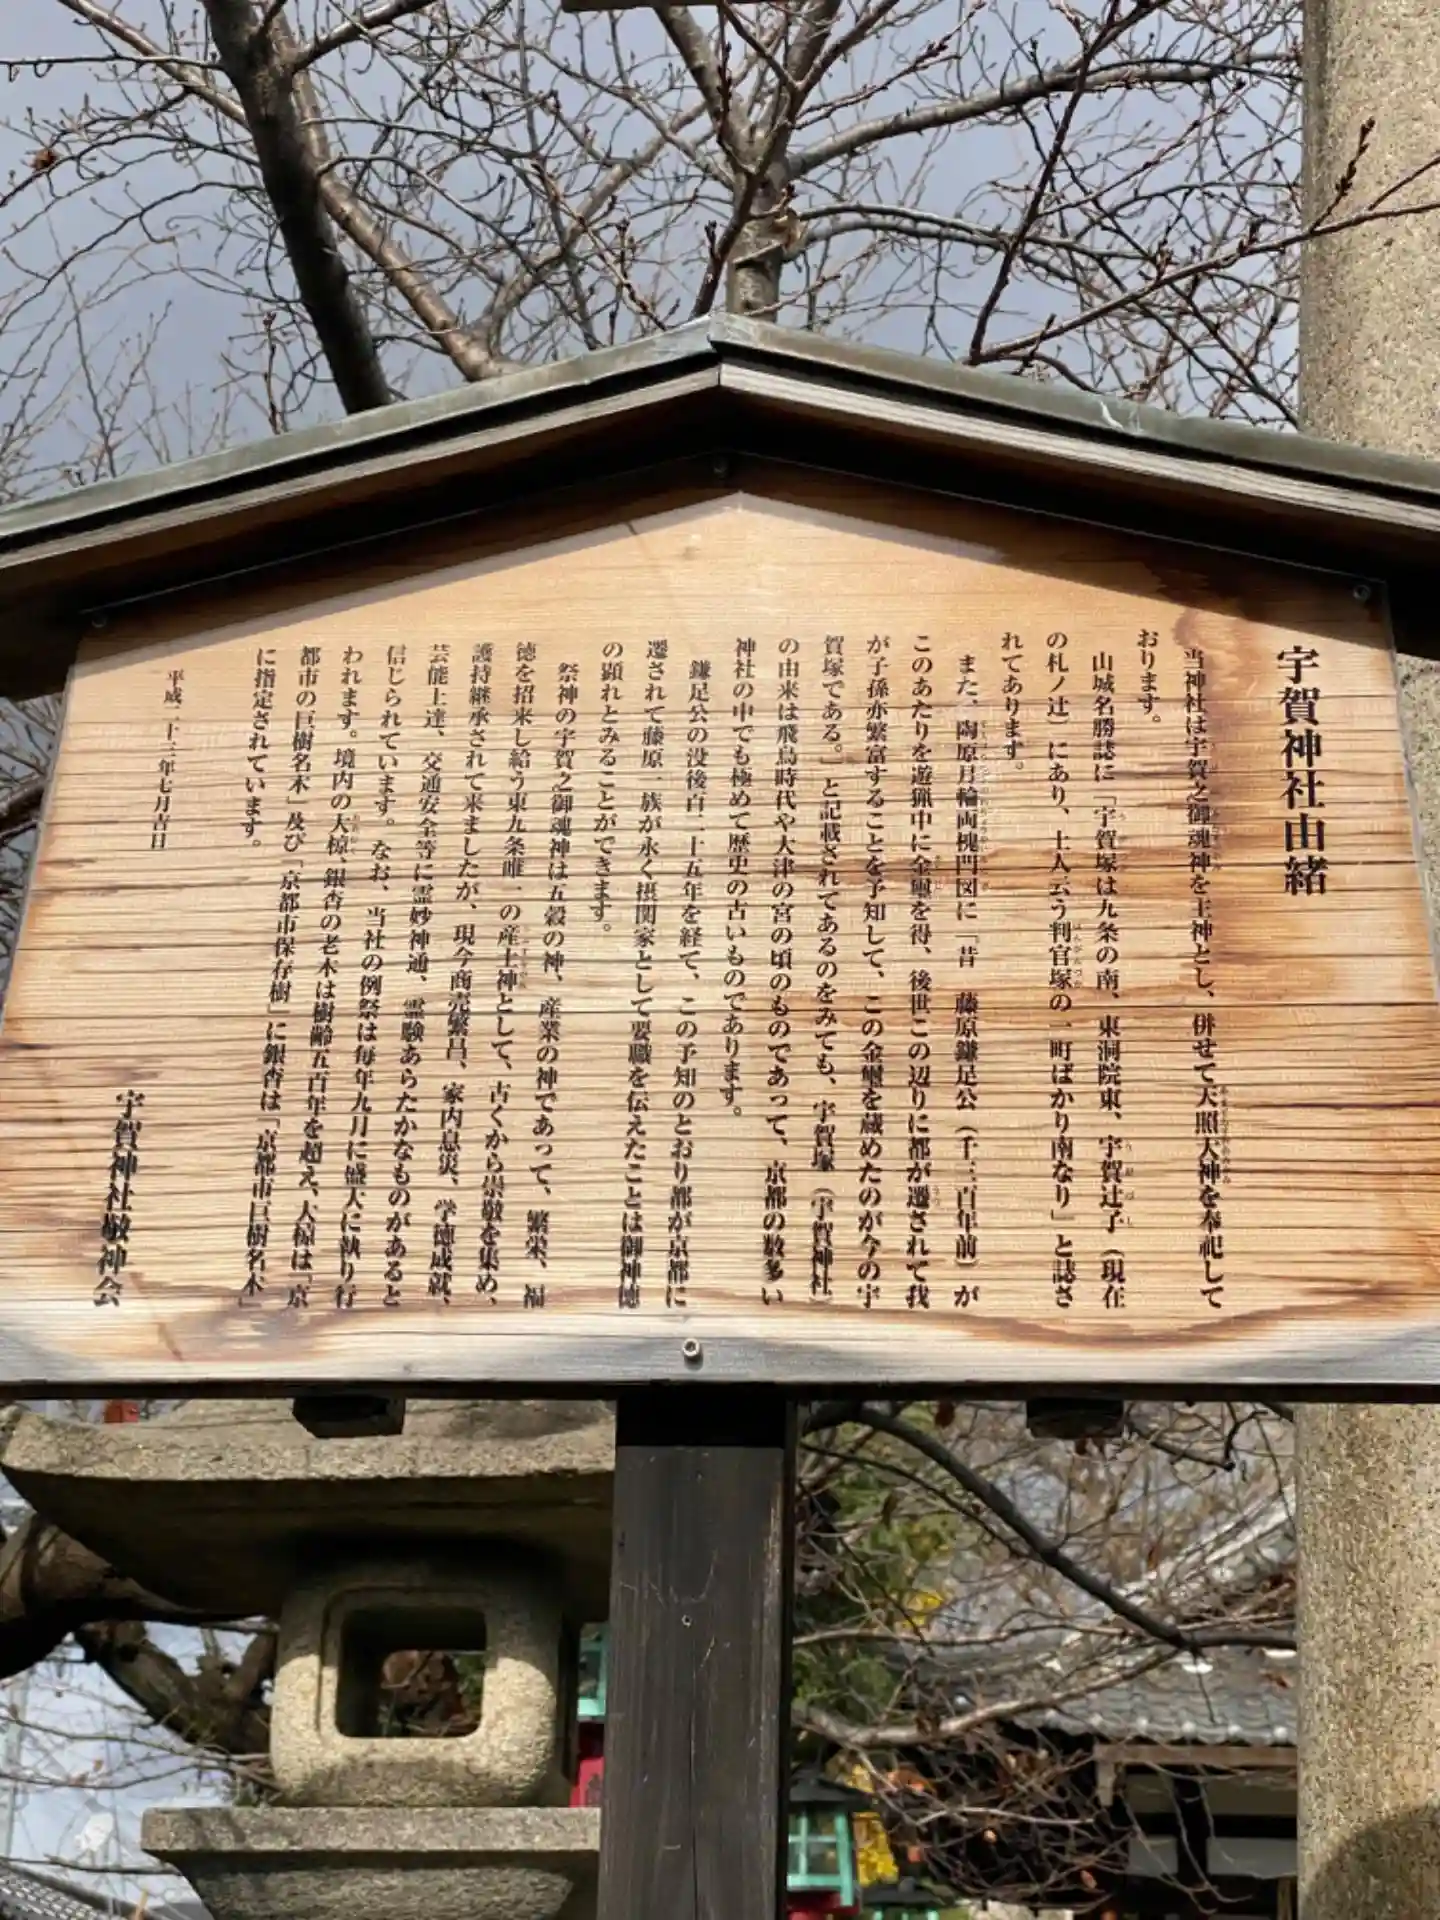 宇賀神社由緒
当神社は宇賀之御魂神を主神とし、併せて天照大神を奉祀して
おります。
山城名勝誌に「宇賀塚は九条の南、東洞院東、宇賀辻子（現在
の札ノ辻）にあり、土人云う判官塚の一町ばかり南なり」と誌さ
れてあります。
また、陶原月輪両槐門図に「昔　藤原鎌足公（千三百年前）が
このあたりを遊猟中に金璽を得、後世この辺りに都が遷されて我
が子孫亦繁富することを予知して、この金璽を蔵めたのが今の宇
賀塚である。」と記載されてあるのをみても、宇賀塚（宇賀神社）
の由来は飛鳥時代や大津の宮の頃のものであって、京都の数多い
神社の中でも極めて歴史の古いものであります。
鎌足公の没後百二十五年を経て、この予知のとおり都が京都に
遷されて藤原一族が永く摂関家として要職を伝えたことは御神徳
の顕れとみることができます。
祭神の宇賀之御魂神は五穀の神、産業の神であって、繁栄、福
徳を招来し給う東九条唯一の産土神として、古くから崇敬を集め、
護持継承されて来ましたが、現今商売繁昌、家内息災、学徳成就、
芸能上達、交通安全等に霊妙神通、霊験あらたかなものがあると
信じられています。なお、当社の例祭は毎年九月に盛大に執り行
われます。境内の大椋、銀杏の老木は樹齢五百年を超え、大椋は「京
都市の巨樹名木」及び「京都市保存樹」に銀杏は「京都市巨樹名木」
に指定されています。
平成二十三年七月吉日
宇賀神社敬神会